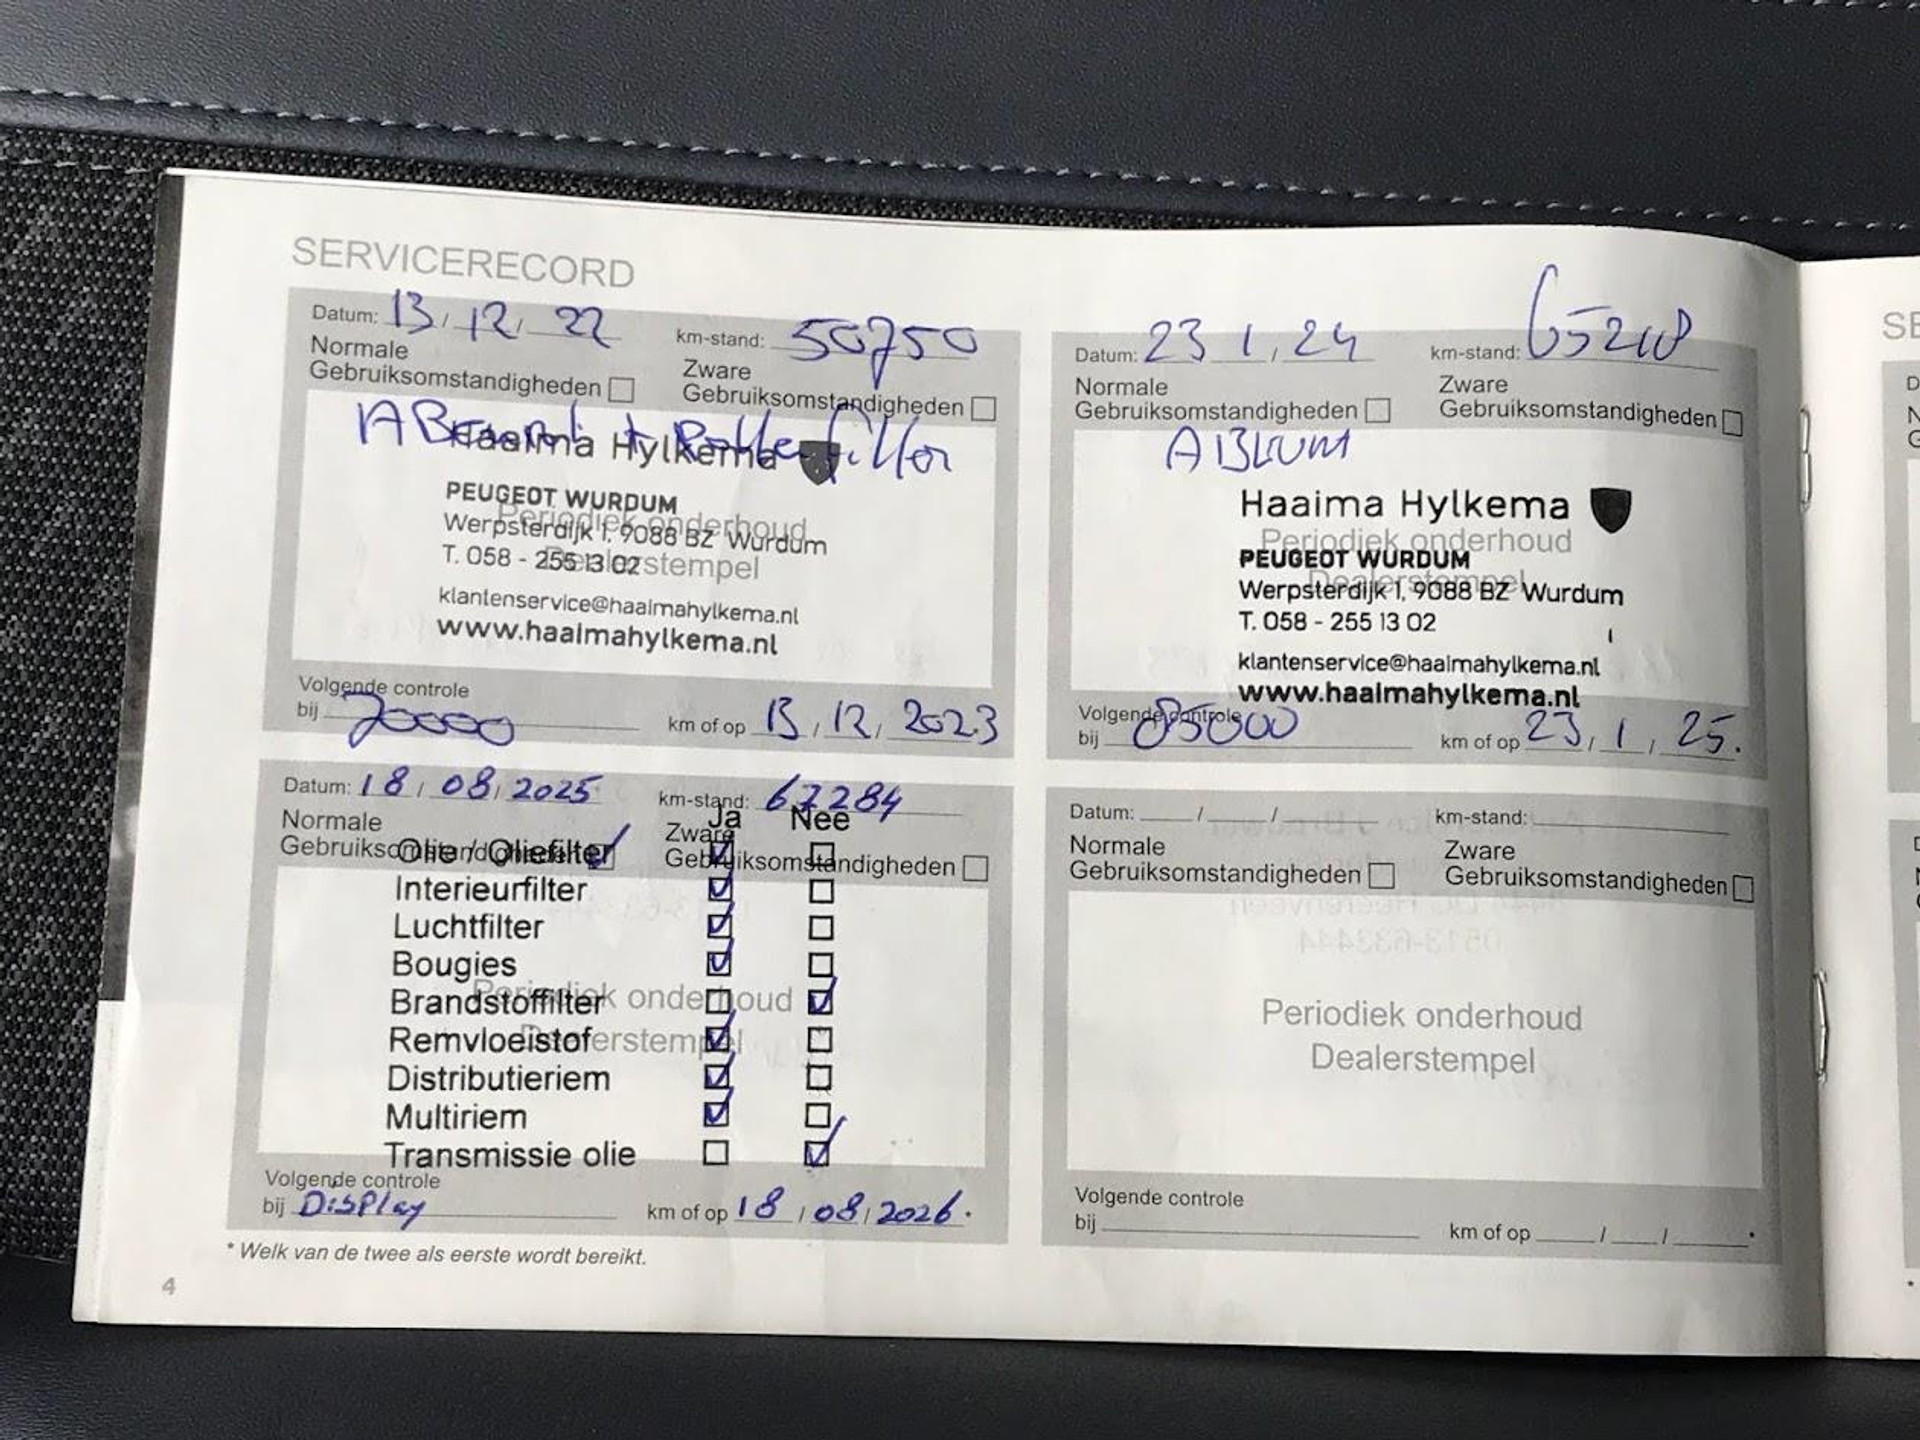 SERVICERECORD
Datum: 13 / 12 / 22 km-stand: 50750
Normale Zware
Gebruiksomstandigheden Gebruiksomstandigheden
Haaima Hylkema
PEUGEOT WURDUM
Periodiek onderhoud
Werpsterdijk 1, 9088 BZ Wurdum
T. 058 - 255 13 02
Dealerstempel
klantenservice@haaimahylkema.nl
www.haaimahylkema.nl
Volgende controle
bij 70000 km of op 13 / 12 / 2023
Datum: 23 / 1 / 24 km-stand:
Normale Zware
Gebruiksomstandigheden Gebruiksomstandigheden
Haaima Hylkema
Periodiek onderhoud
PEUGEOT WURDUM
Dealerstempel
Werpsterdijk 1, 9088 BZ Wurdum
T. 058 - 255 13 02
klantenservice@haaimahylkema.nl
www.haaimahylkema.nl
Volgende controle
bij 85000 km of op 23 / 1 / 25.
Datum: 18 / 08 / 2025 km-stand: 67284
Ja Nee
Normale Zware
Gebruiksomstandigheden Gebruiksomstandigheden
Olie / Oliefilter
Interieurfilter
Luchtfilter
Bougies
Periodiek onderhoud
Brandstoffilter
Dealerstempel
Remvloeistof
Distributieriem
Multiriem
Transmissie olie
Volgende controle
bij Display km of op 18 / 08 / 2026.
Datum: / / km-stand:
Normale Zware
Gebruiksomstandigheden Gebruiksomstandigheden
Periodiek onderhoud
Dealerstempel
Volgende controle
bij km of op / / .
* Welk van de twee als eerste wordt bereikt.
4